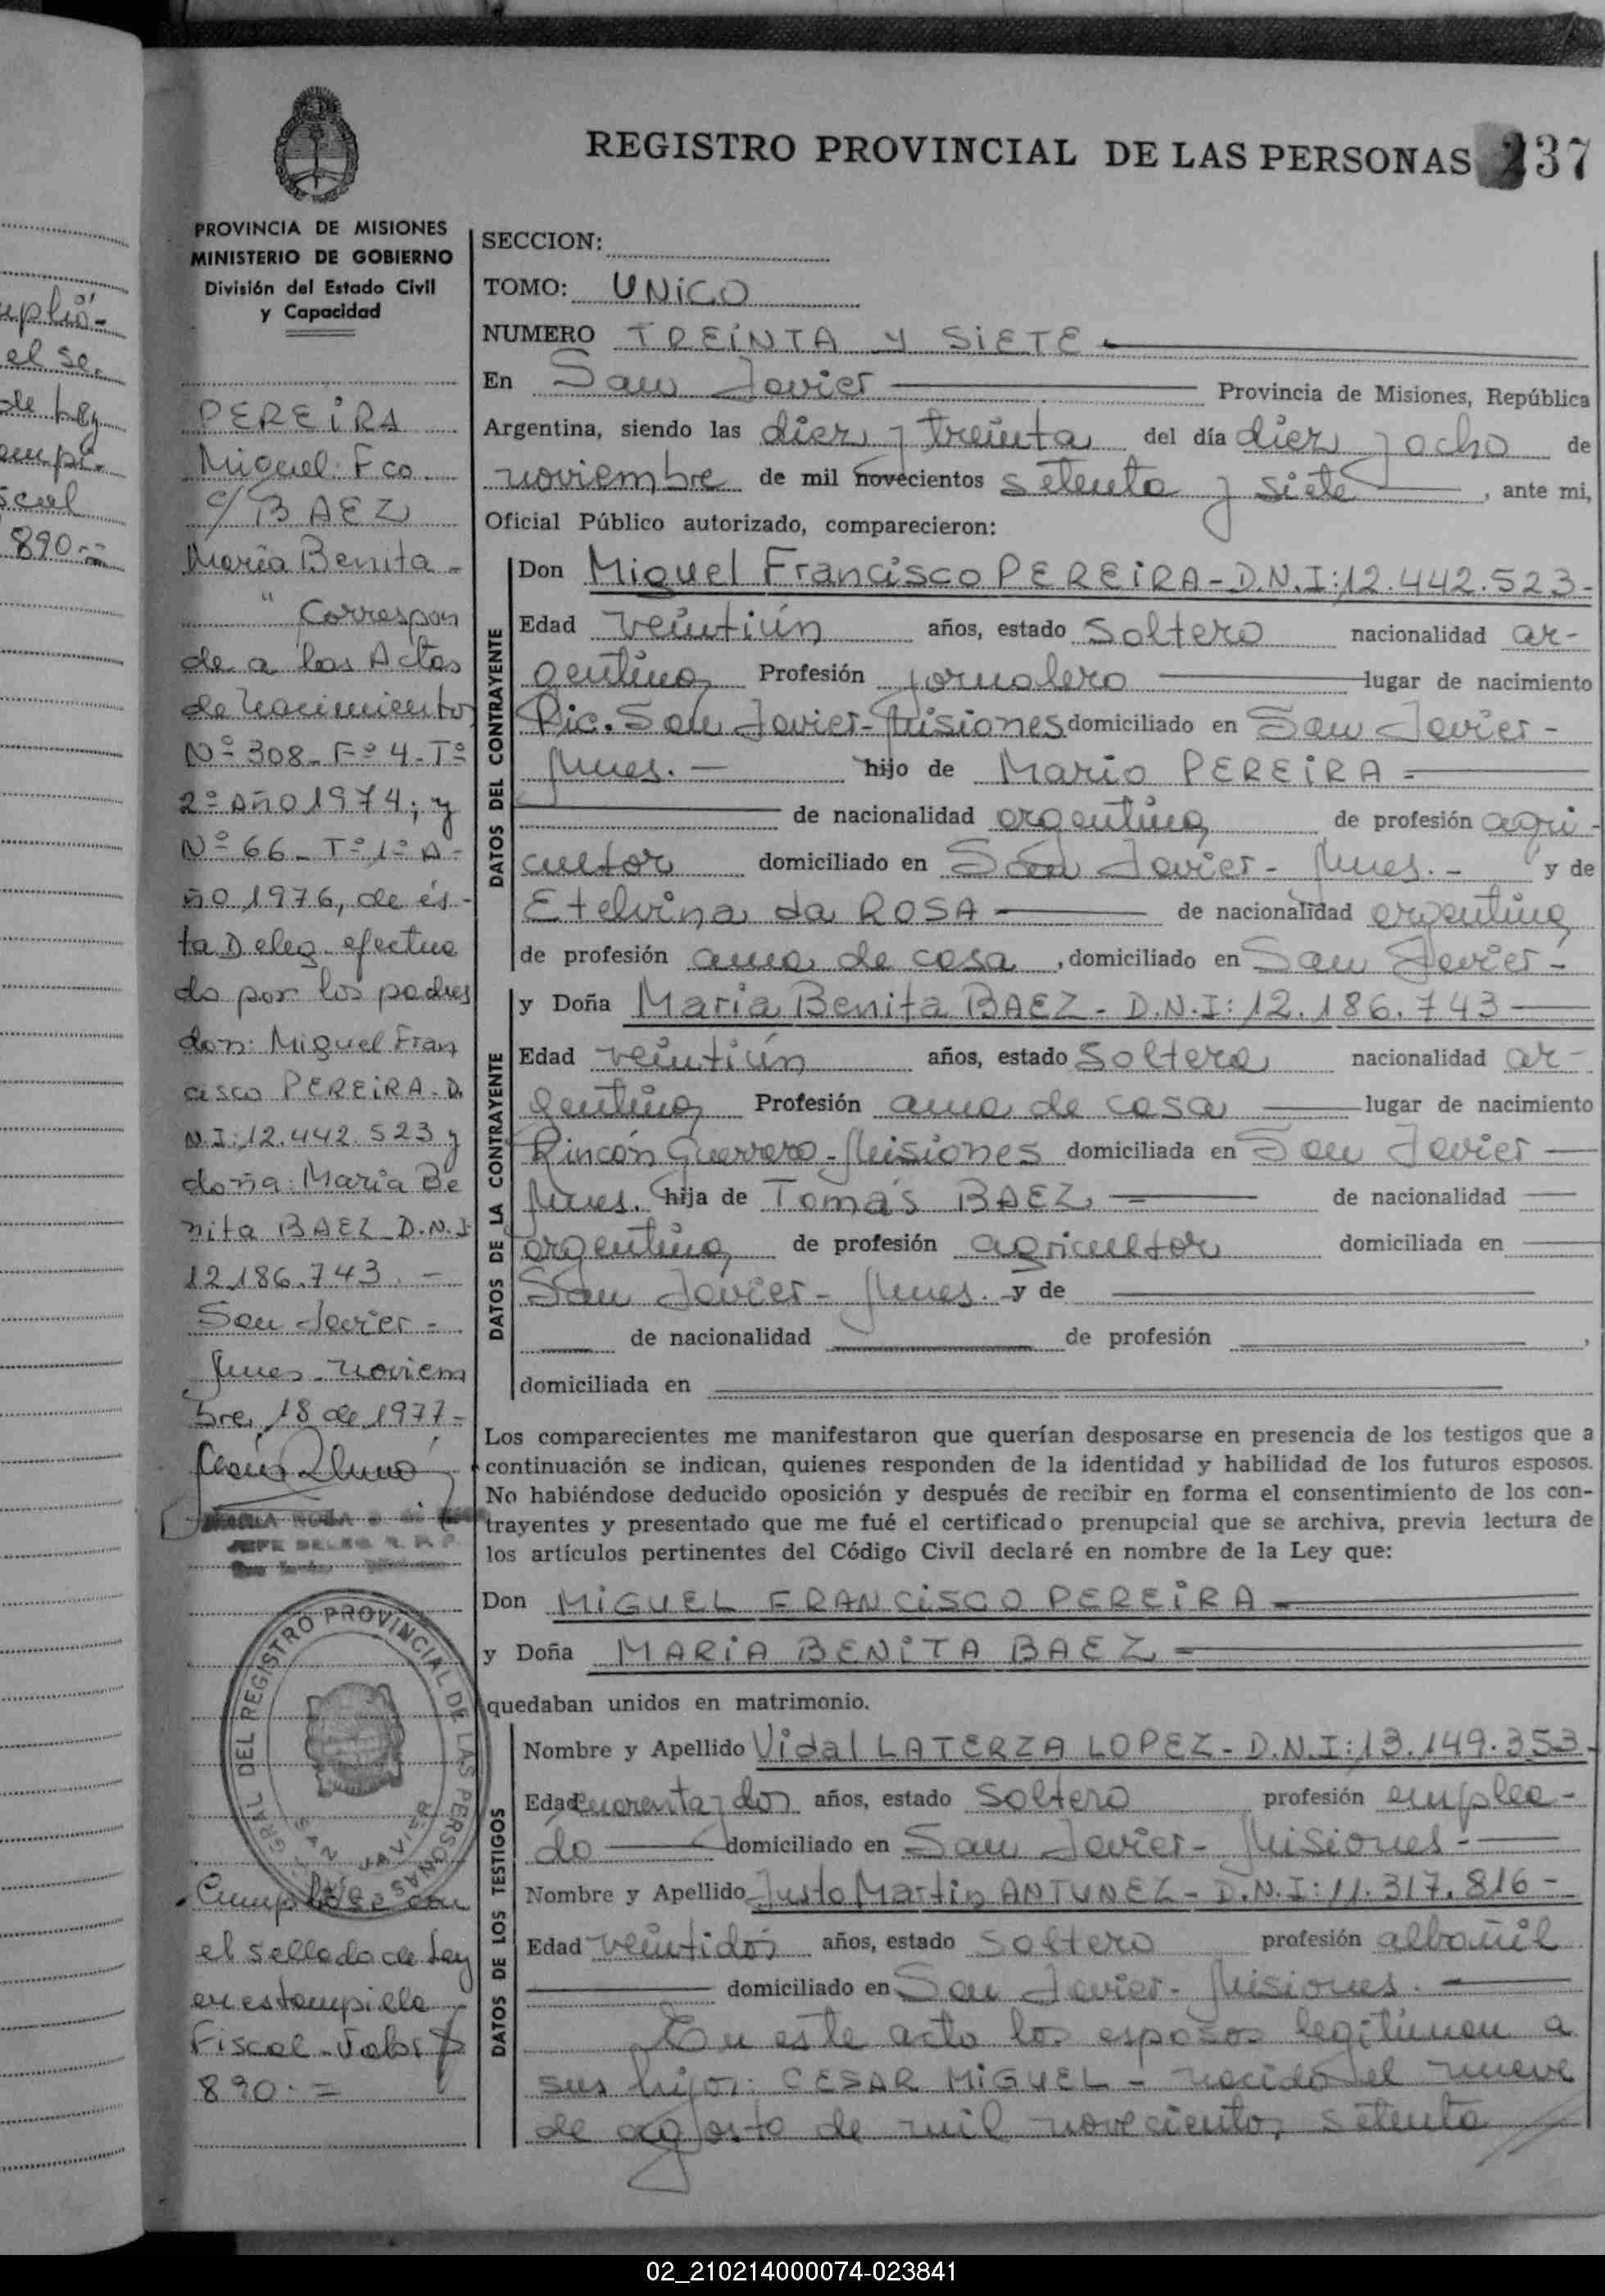 uplió-
el se.
de Ley
empi-
scal
890.=
REGISTRO PROVINCIAL DE LAS PERSONAS 237
PROVINCIA DE MISIONES
MINISTERIO DE GOBIERNO
División del Estado Civil
y Capacidad
PEREIRA
Miguel Fco.
c/ BAEZ
María Benita -
" Correspon
de a las Actas
de Nacimientos
Nº 308- Fº 4- Tº
2º Año 1974; y
Nº 66- Tº 1º A-
ño 1976, de és-
ta Deleg. efectua
do por los padres
don: Miguel Fran
cisco PEREIRA-D.
N.I: 12.442.523 y
doña: María Be
nita BAEZ-D.N.I
12.186.743.-
San Javier-
Mnes- noviem
bre, 18 de 1977-
MARIA ROSA
JEFE DELEG. R. P. P.
DEL REGISTRO PROVINCIAL DE LAS PERSONAS
SAN JAVIER
Cumplose con
el sellado de Ley
en estampilla
Fiscal-Valor $
890.=
SECCION:
TOMO: UNICO
NUMERO TREINTA Y SIETE
En San Javier Provincia de Misiones, República
Argentina, siendo las diez y treinta del día diez y ocho de
noviembre de mil novecientos setenta y siete , ante mi,
Oficial Público autorizado, comparecieron:
DATOS DEL CONTRAYENTE
Don Miguel Francisco PEREIRA-D.N.I: 12.442.523-
Edad veintiún años, estado soltero nacionalidad ar-
gentina Profesión jornalero lugar de nacimiento
Pic. San Javier-Misiones domiciliado en San Javier-
Mnes.- hijo de Mario PEREIRA-
de nacionalidad argentina de profesión agri-
cultor domiciliado en San Javier-Mnes.- y de
Etelvina da ROSA de nacionalidad argentina
de profesión ama de casa , domiciliado en San Javier-
DATOS DE LA CONTRAYENTE
y Doña Maria Benita BAEZ- D.N.I: 12.186.743
Edad veintiún años, estado soltera nacionalidad ar-
gentina Profesión ama de casa lugar de nacimiento
Rincón Guerrero-Misiones domiciliada en San Javier
Mnes. hija de Tomás BAEZ- de nacionalidad
argentina de profesión agricultor domiciliada en
San Javier-Mnes.- y de
de nacionalidad de profesión ,
domiciliada en
Los comparecientes me manifestaron que querían desposarse en presencia de los testigos que a
continuación se indican, quienes responden de la identidad y habilidad de los futuros esposos.
No habiéndose deducido oposición y después de recibir en forma el consentimiento de los con-
trayentes y presentado que me fué el certificado prenupcial que se archiva, previa lectura de
los artículos pertinentes del Código Civil declaré en nombre de la Ley que:
Don MIGUEL FRANCISCO PEREIRA-
y Doña MARIA BENITA BAEZ-
quedaban unidos en matrimonio.
DATOS DE LOS TESTIGOS
Nombre y Apellido Vidal LATERZA LOPEZ- D.N.I: 13.149.353-
Edad cuarenta y dos años, estado soltero profesión emplea-
do domiciliado en San Javier-Misiones-
Nombre y Apellido Justo Martin ANTUNEZ- D.N.I: 11.317.816-
Edad veintidos años, estado soltero profesión albañil
domiciliado en San Javier-Misiones.-
En este acto los esposos legitiman a
sus hijos: CESAR MIGUEL- nacido el nueve
de agosto de mil novecientos setenta
02_210214000074-023841